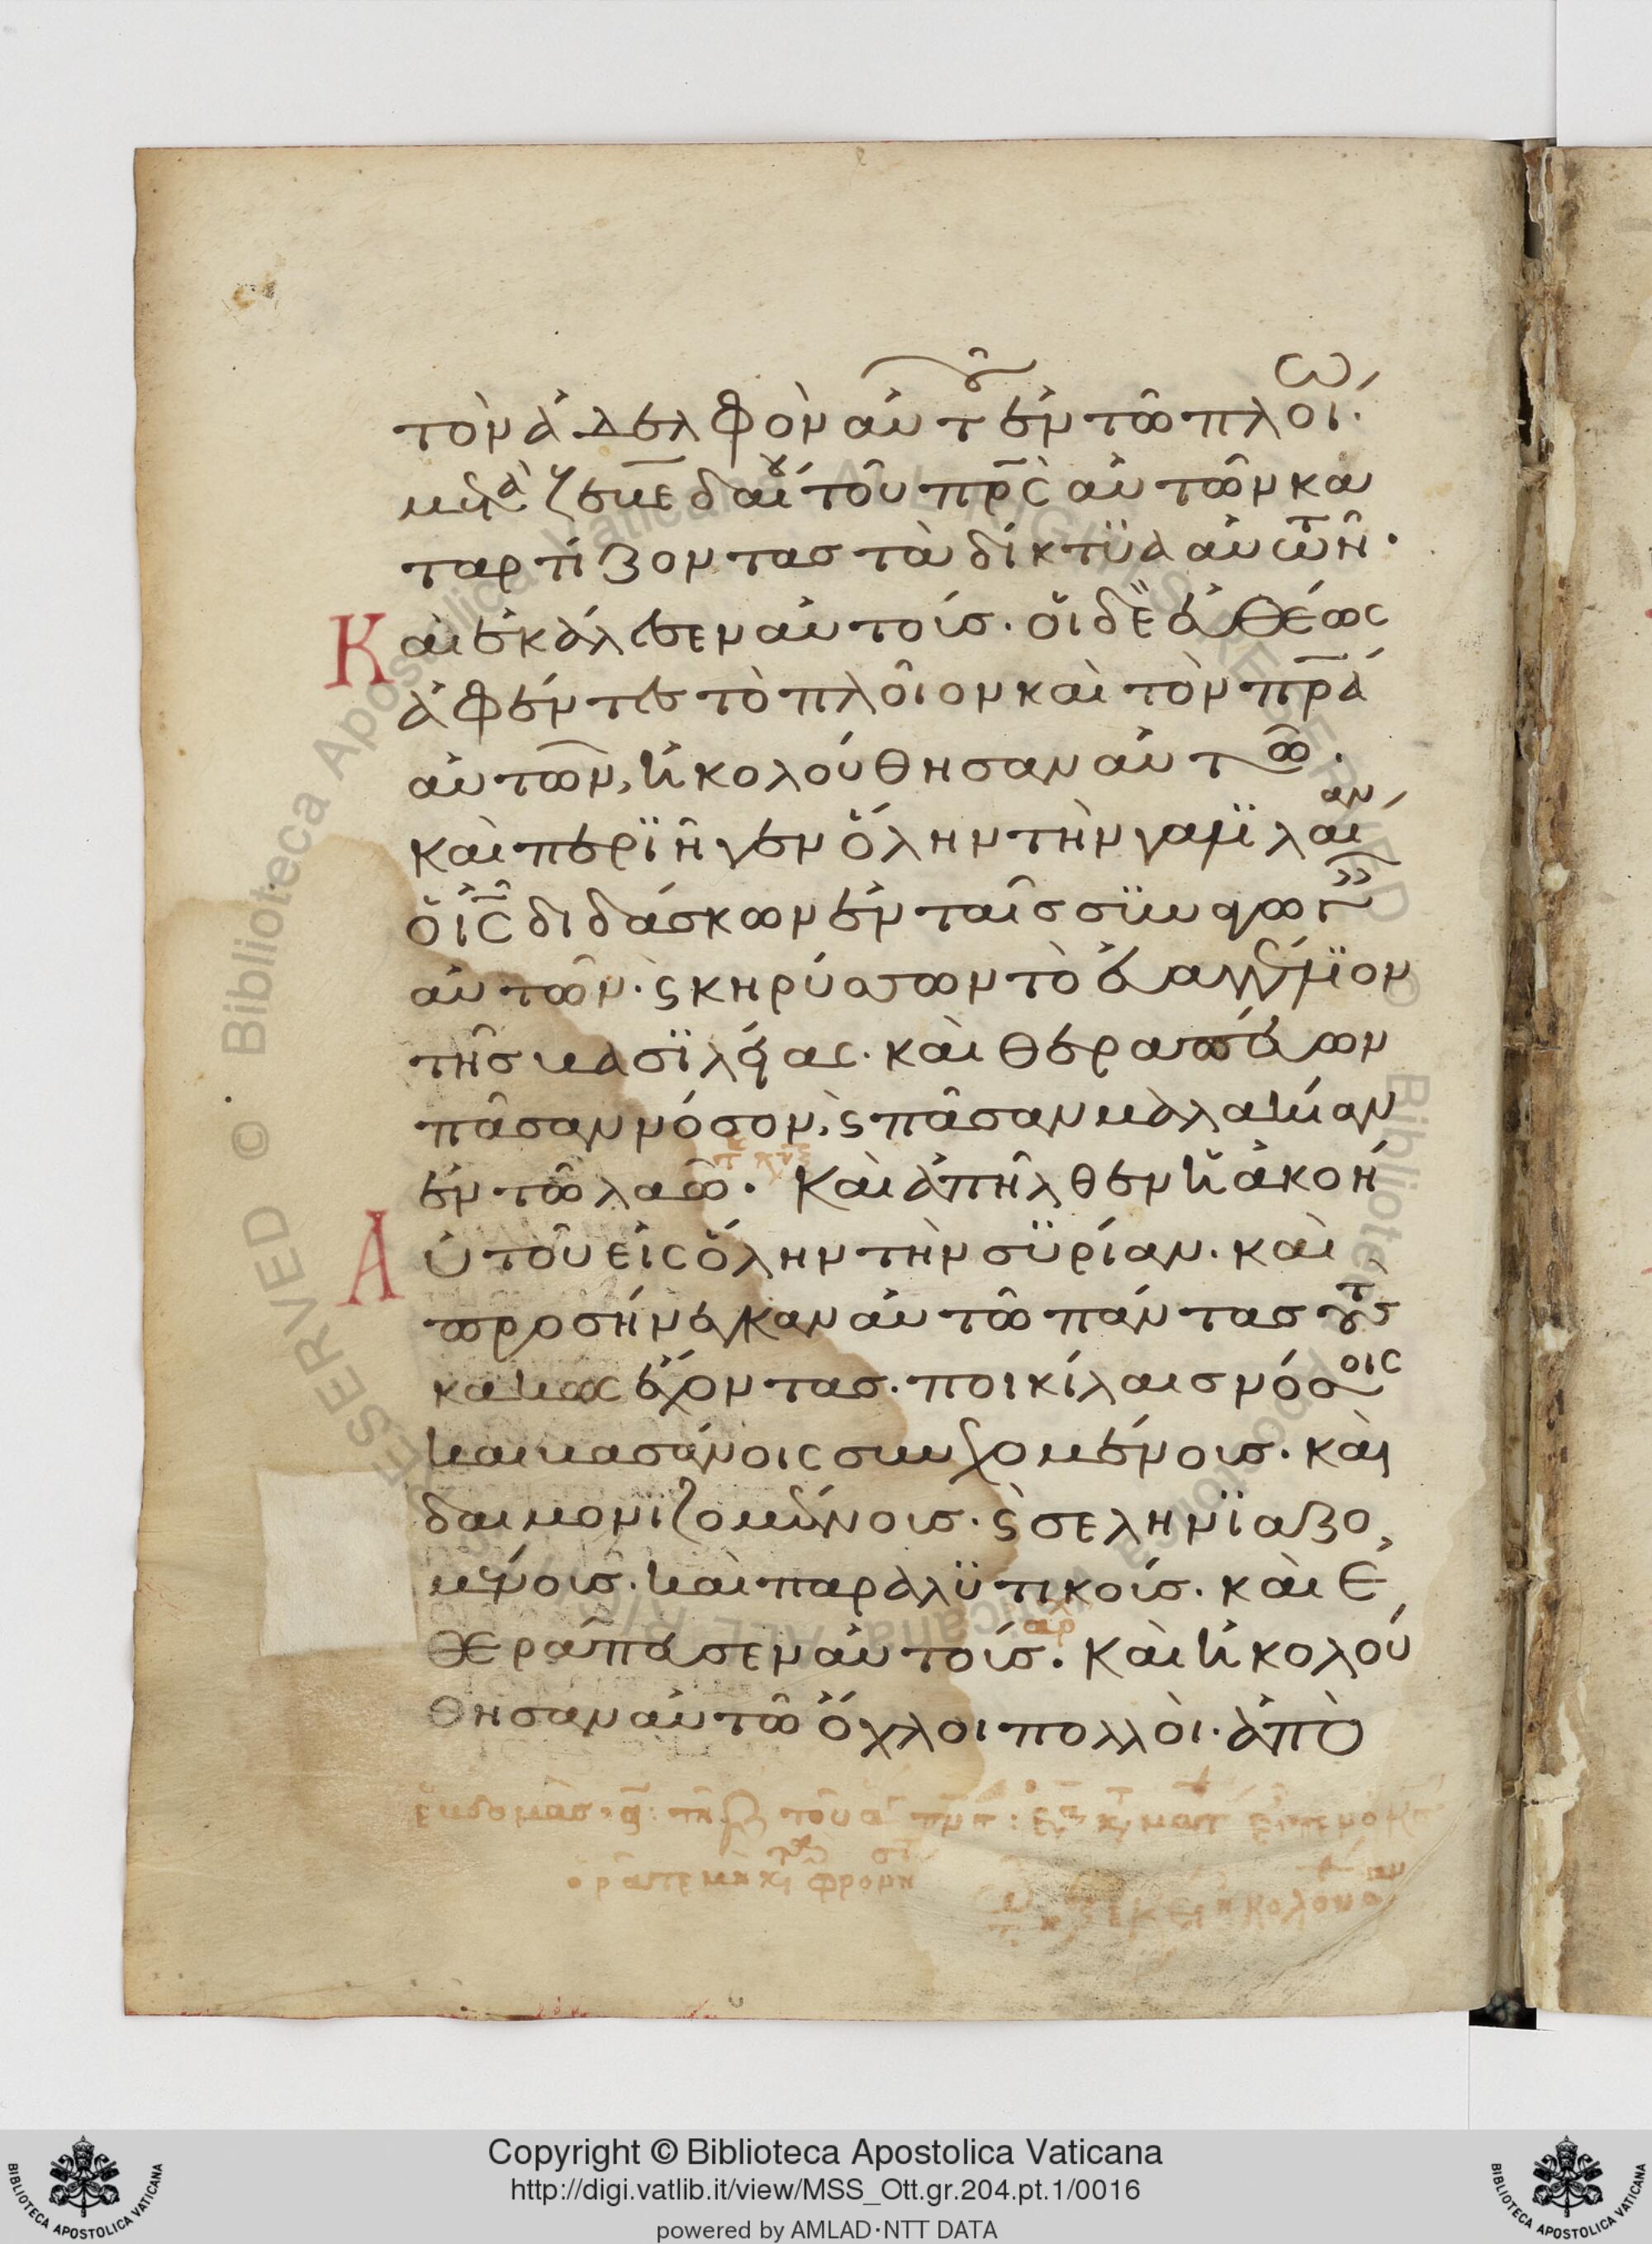 τὸν ἀδελφὸν αὐτοῦ ἐν τῶ πλοίω·
μετὰ ζεβεδαίου τοῦ πρ̅ς αὐτῶν κα
ταρτίζοντας τὰ δίκτϋα αὐτῶν·
Καὶ ἐκάλεσεν αὐτούσ· οἱ δὲ εὐθέως
ἀφέντες τὸ πλοῖον καὶ τὸν πρ̅α
αὐτῶν, ἠκολούθησαν αὐτῶ·
καὶ περϊῆγεν ὅλην τὴν γαλϊλαίαν
ὁ ι̅ς̅ διδάσκων ἐν ταῖς σϋναγωγαῖς
αὐτῶν· ϗ κηρύσσων τὸ εὐαγγέλϊον
τῆς βασϊλείας· καὶ θεραπεύων
πᾶσαν νόσον, ϗ πᾶσαν μαλακίαν
ἐν τῶ λαῶ· Καὶ ἀπῆλθεν ἡ ἀκοὴ
Αὐτοῦ εἰς ὅλην τὴν σϋρίαν· καὶ
προσήνεγκαν αὐτῶ πάντας τοὺς
κακῶς ἔχοντας· ποικίλαις νόσοις
καὶ βασάνοις συνεχομένοις· καὶ
δαιμονϊζομένοις· ϗ σεληνϊαζο,
μένοις· καὶ παραλϋτικοίς· καὶ ἐ,
θεράπευσεν αὐτούς· Καὶ ἠκολού
θησαν αὐτῶ ὄχλοι πολλοὶ· ἀπὸ
Copyright © Biblioteca Apostolica Vaticana
http://digi.vatlib.it/view/MSS_Ott.gr.204.pt.1/0016
powered by AMLAD·NTT DATA
BIBLIOTECA APOSTOLICA VATICANA
BIBLIOTECA APOSTOLICA VATICANA